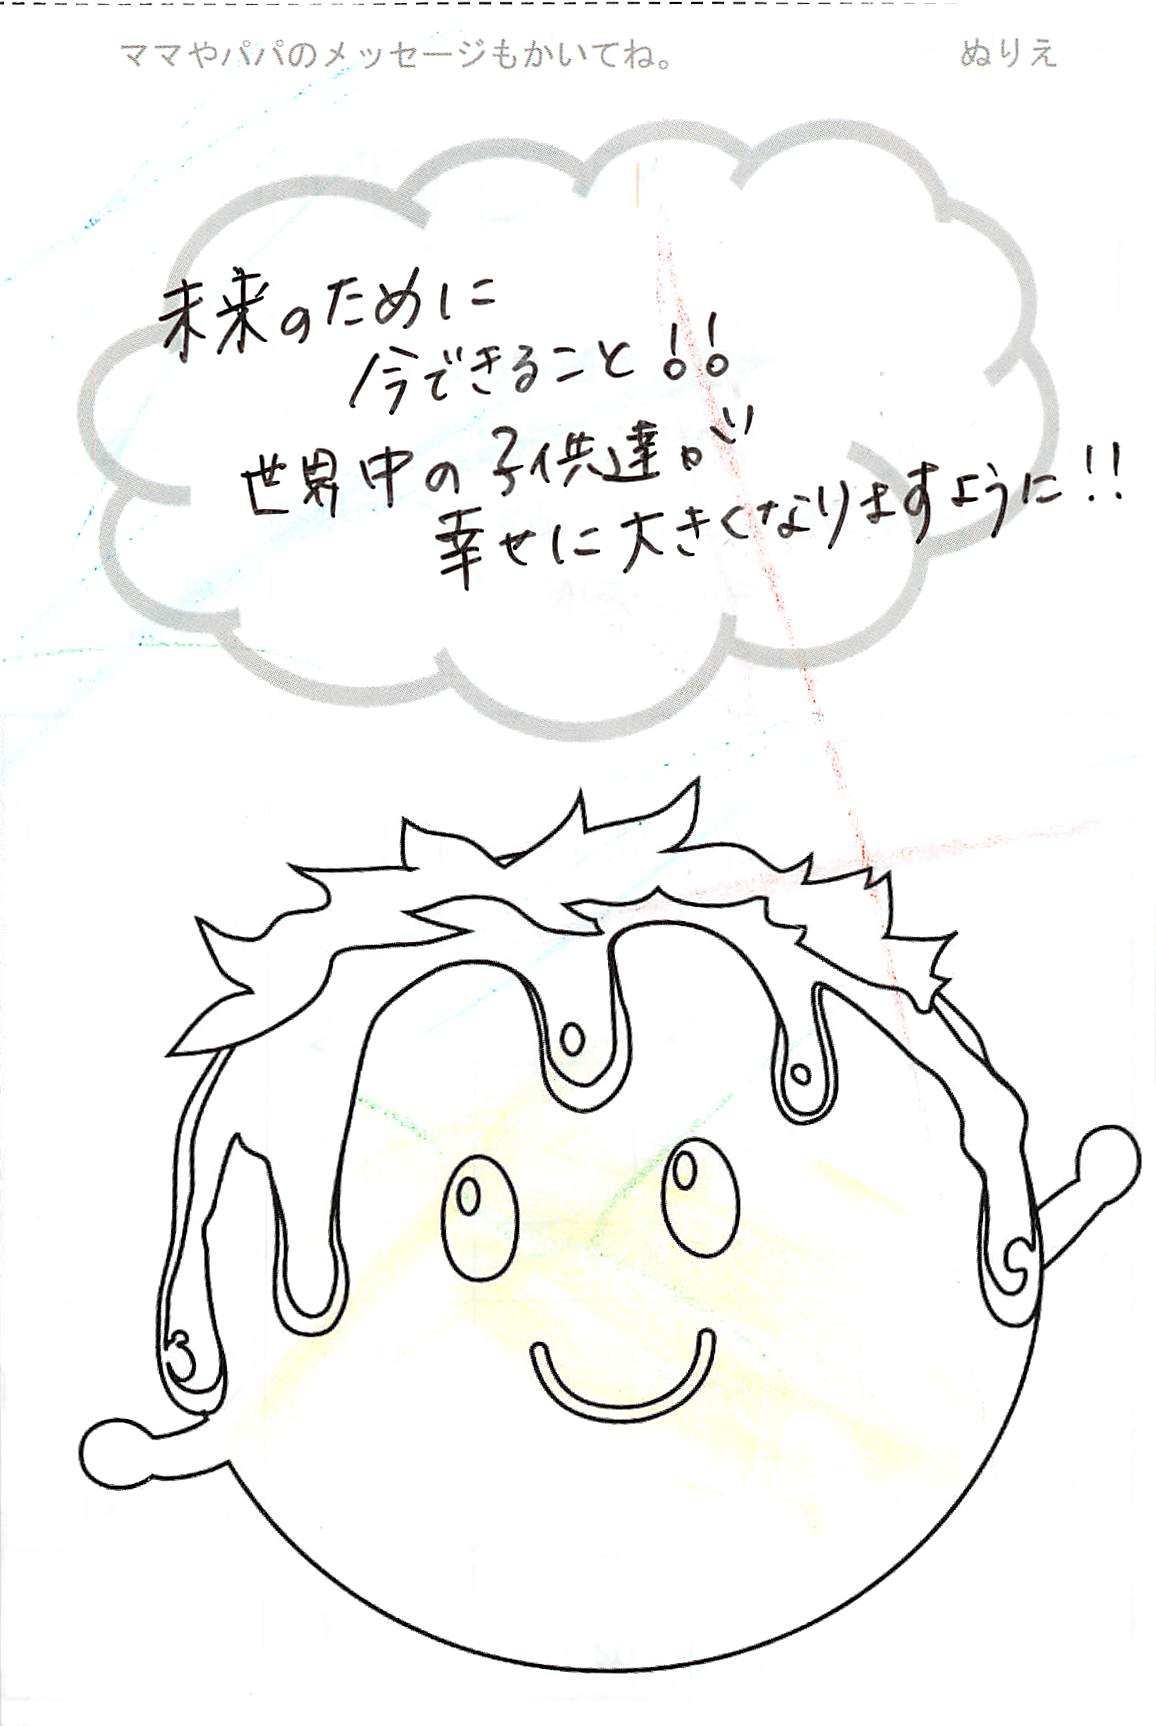 ママやパパのメッセージもかいてね。 ぬりえ
未来のために
今できること!!
世界中の子供達が
幸せに大きくなりますように!!